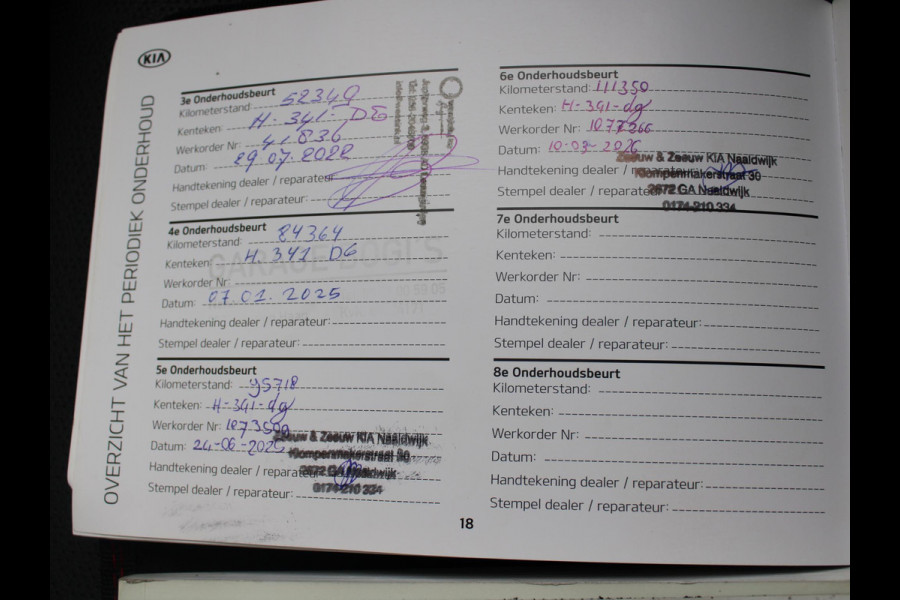 KIA
OVERZICHT VAN HET PERIODIEK ONDERHOUD
3e Onderhoudsbeurt
Kilometerstand: 52349
Kenteken: H-341-DG
Werkorder Nr: 41836
Datum: 29.07.2022
Handtekening dealer / reparateur:
Stempel dealer / reparateur:
4e Onderhoudsbeurt
Kilometerstand: 84364
Kenteken: H.341 DG
Werkorder Nr:
Datum: 07.01.2025
Handtekening dealer / reparateur:
Stempel dealer / reparateur:
5e Onderhoudsbeurt
Kilometerstand: 95718
Kenteken: H-341-dg
Werkorder Nr:
Datum: 24-06-2025
Zeeuw & Zeeuw KIA Naaldwijk
Klompenmakerstraat 30
Handtekening dealer / reparateur:
2672 GA Naaldwijk
Stempel dealer / reparateur:
0174-210 334
6e Onderhoudsbeurt
Kilometerstand: 111350
Kenteken: H-341-dg
Werkorder Nr: 1077266
Datum: 10-03-2026
Zeeuw & Zeeuw KIA Naaldwijk
Handtekening dealer /
Klompenmakerstraat 30
Stempel dealer / reparateur
2672 GA Naaldwijk
0174-210 334
7e Onderhoudsbeurt
Kilometerstand:
Kenteken:
Werkorder Nr:
Datum:
Handtekening dealer / reparateur:
Stempel dealer / reparateur:
8e Onderhoudsbeurt
Kilometerstand:
Kenteken:
Werkorder Nr:
Datum:
Handtekening dealer / reparateur:
Stempel dealer / reparateur:
18